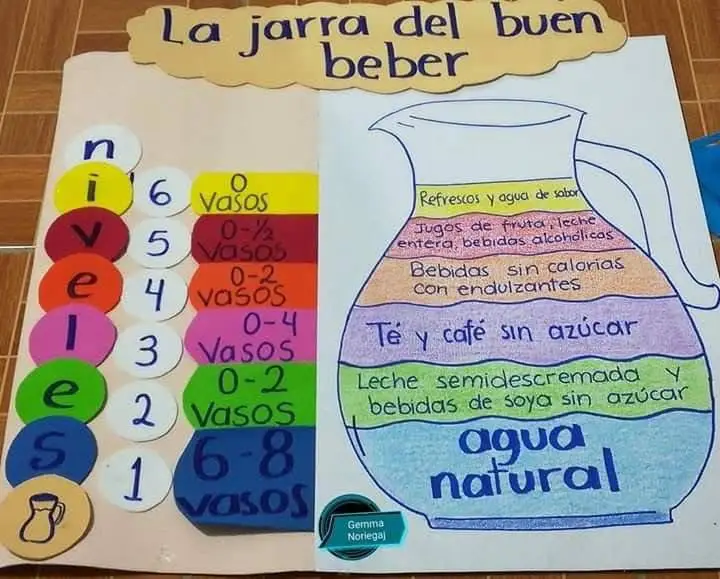 La jarra del buen
beber
niveles
6
0
vasos
5
0-½
vasos
4
0-2
vasos
3
0-4
vasos
2
0-2
vasos
1
6-8
vasos
Refrescos y agua de sabor
Jugos de fruta, leche
entera, bebidas alcohólicas
Bebidas sin calorías
con endulzantes
Té y café sin azúcar
Leche semidescremada y
bebidas de soya sin azúcar
agua
natural
Gemma
Noriegaj